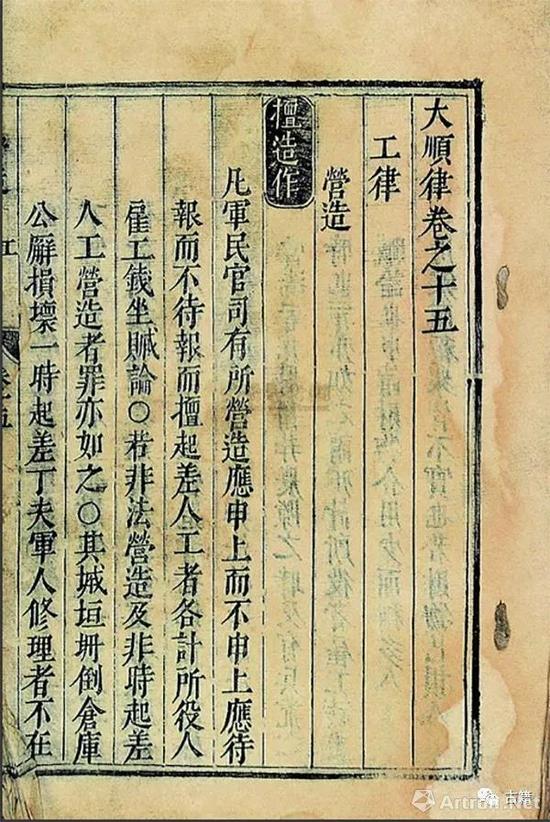 大順律卷之十五
工律
營造
擅造作
凡軍民官司有所營造應申上而不申上應待
報而不待報而擅起差人工者各計所役人
雇工錢坐贓論〇若非法營造及非時起差
人工營造者罪亦如之〇其城垣坍倒倉庫
公廨損壞一時起差丁夫軍人修理者不在
工
古籍
Artron.Net